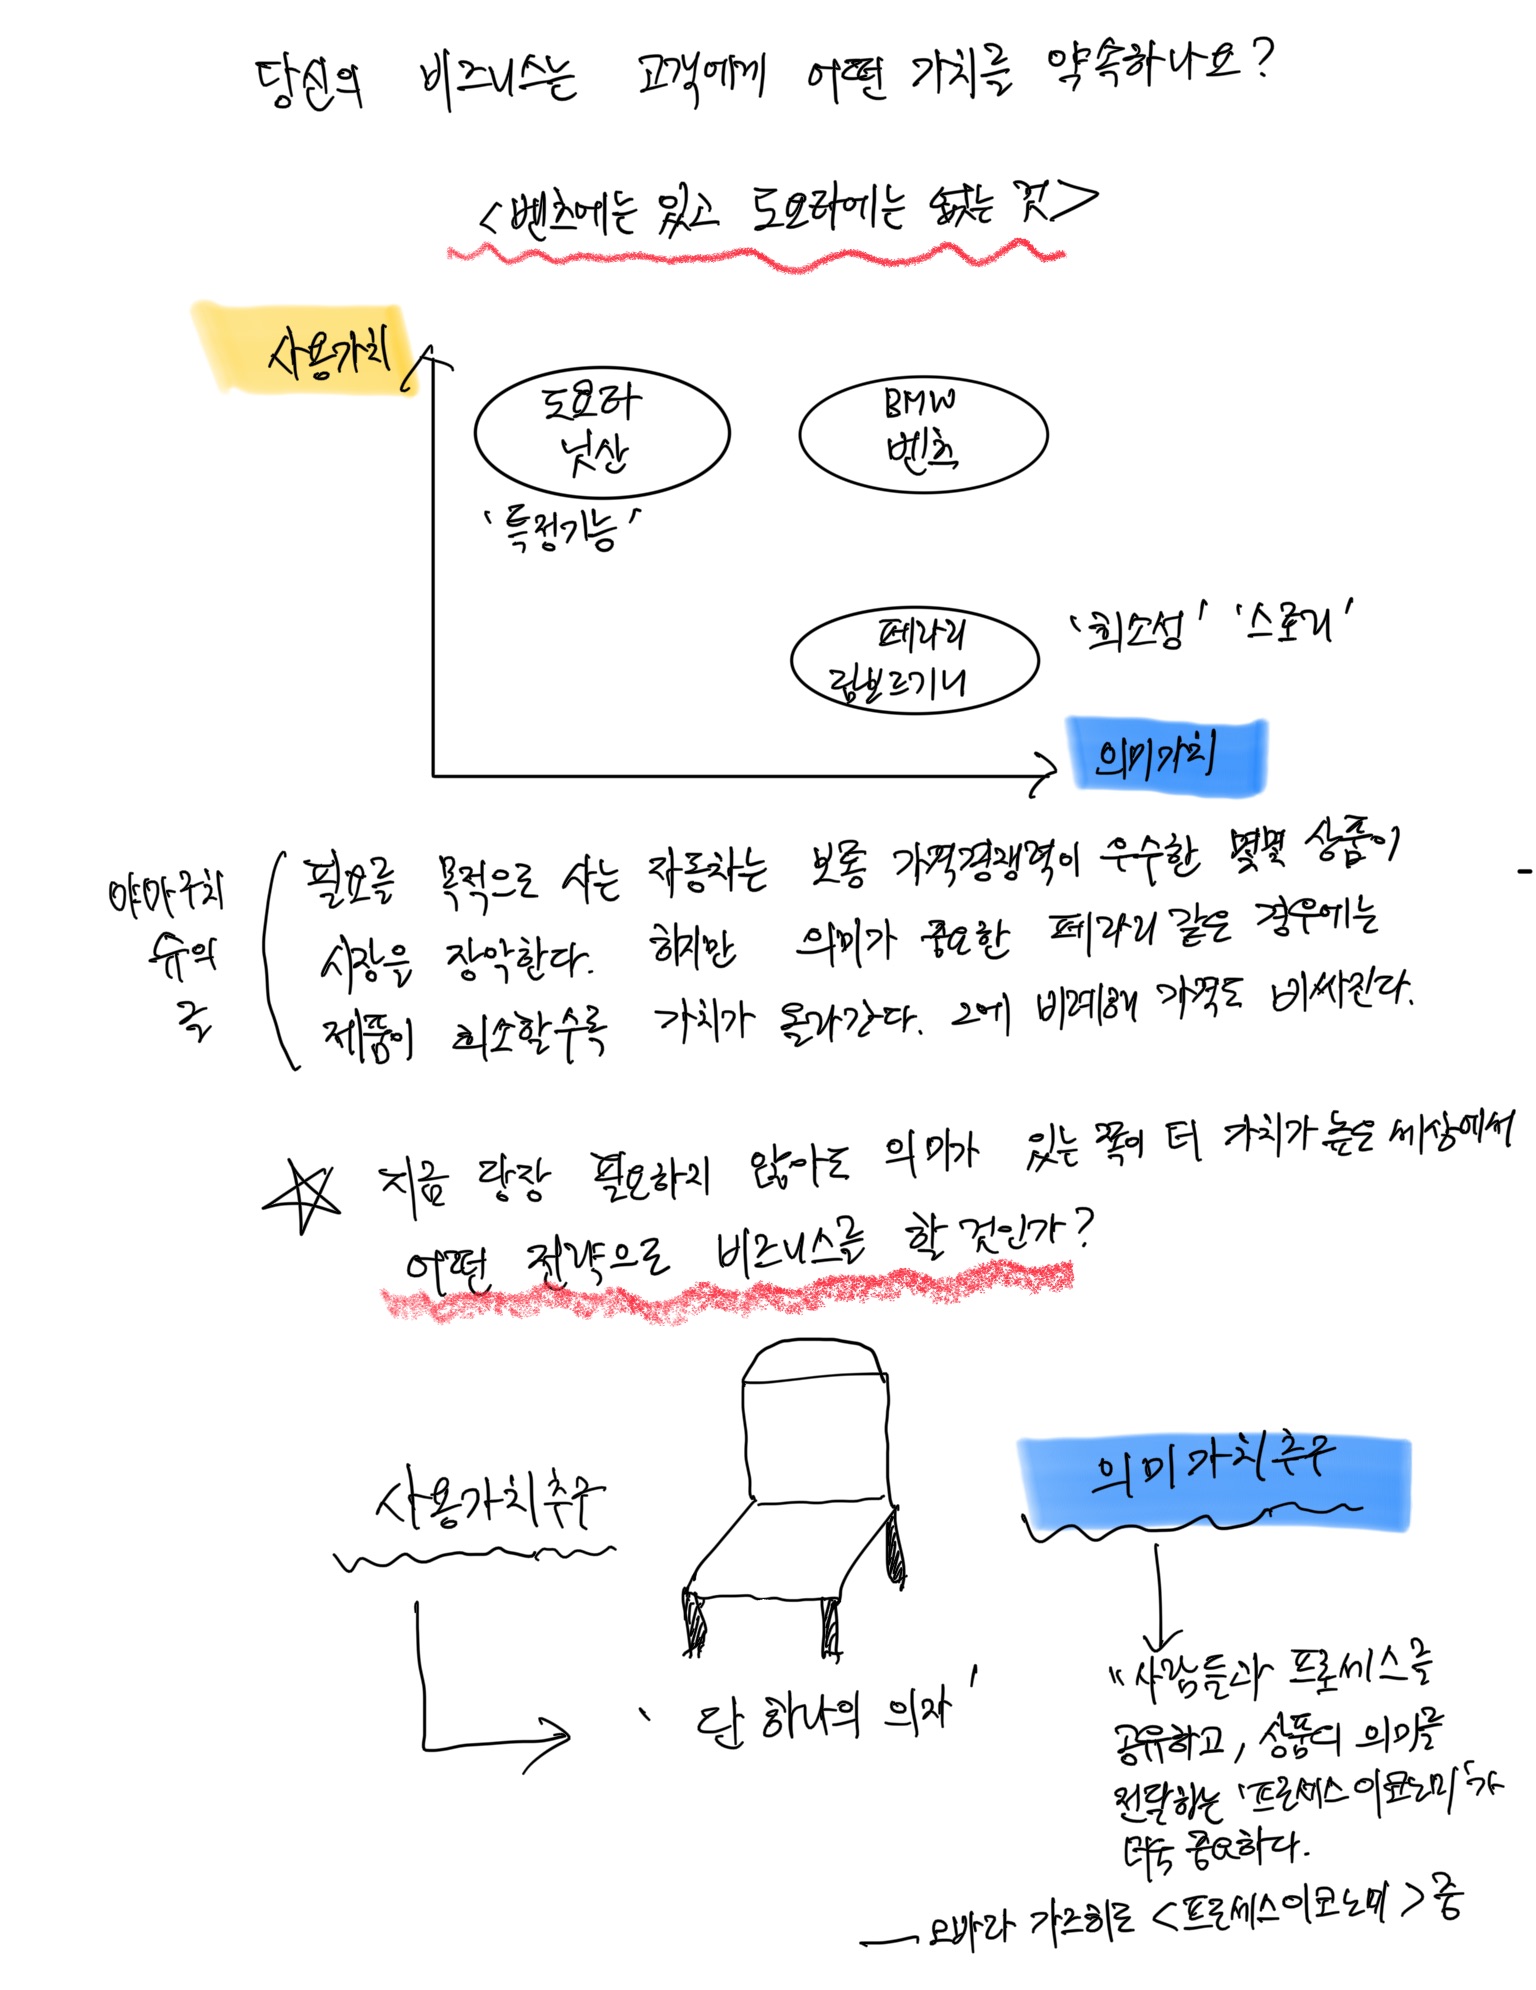 당신의 비즈니스는 고객에게 어떤 가치를 약속하나요?
<벤츠에는 있고 도요타에는 없는 것>
사용가치
도요타
닛산
'특정기능'
BMW
벤츠
페라리
람보르기니
'희소성' '스토리'
의미가치
야마구치
슈의
글
필요를 목적으로 사는 자동차는 보통 가격경쟁력이 우수한 몇몇 상품이
시장을 장악한다. 하지만 의미가 중요한 페라리 같은 경우에는
제품이 희소할수록 가치가 올라간다. 그에 비례해 가격도 비싸진다.
지금 당장 필요하지 않아도 의미가 있는 쪽이 더 가치가 높은 세상에서
어떤 전략으로 비즈니스를 할 것인가?
사용가치추구
의미가치추구
'단 하나의 의자'
"사람들과 프로세스를
공유하고, 상품의 의미를
전달하는 '프로세스 이코노미'가
더욱 중요하다.
— 오바라 가즈히로 <프로세스이코노미> 중